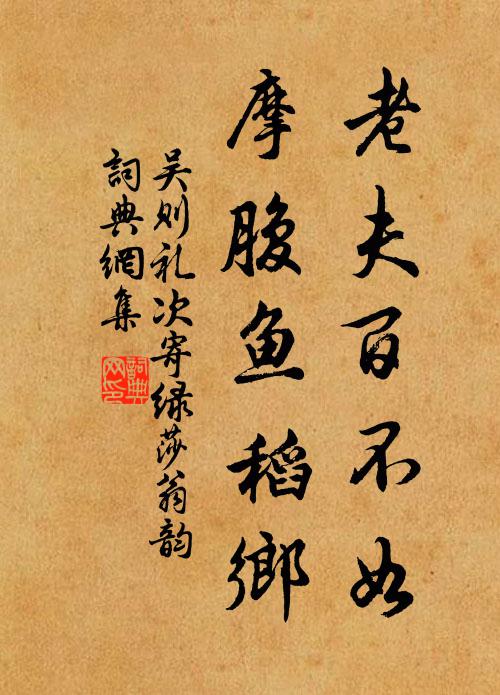 老夫百不如
摩腹鱼稻鄉
吴则礼次寄绿莎翁韵
詞典網集
詞典网印